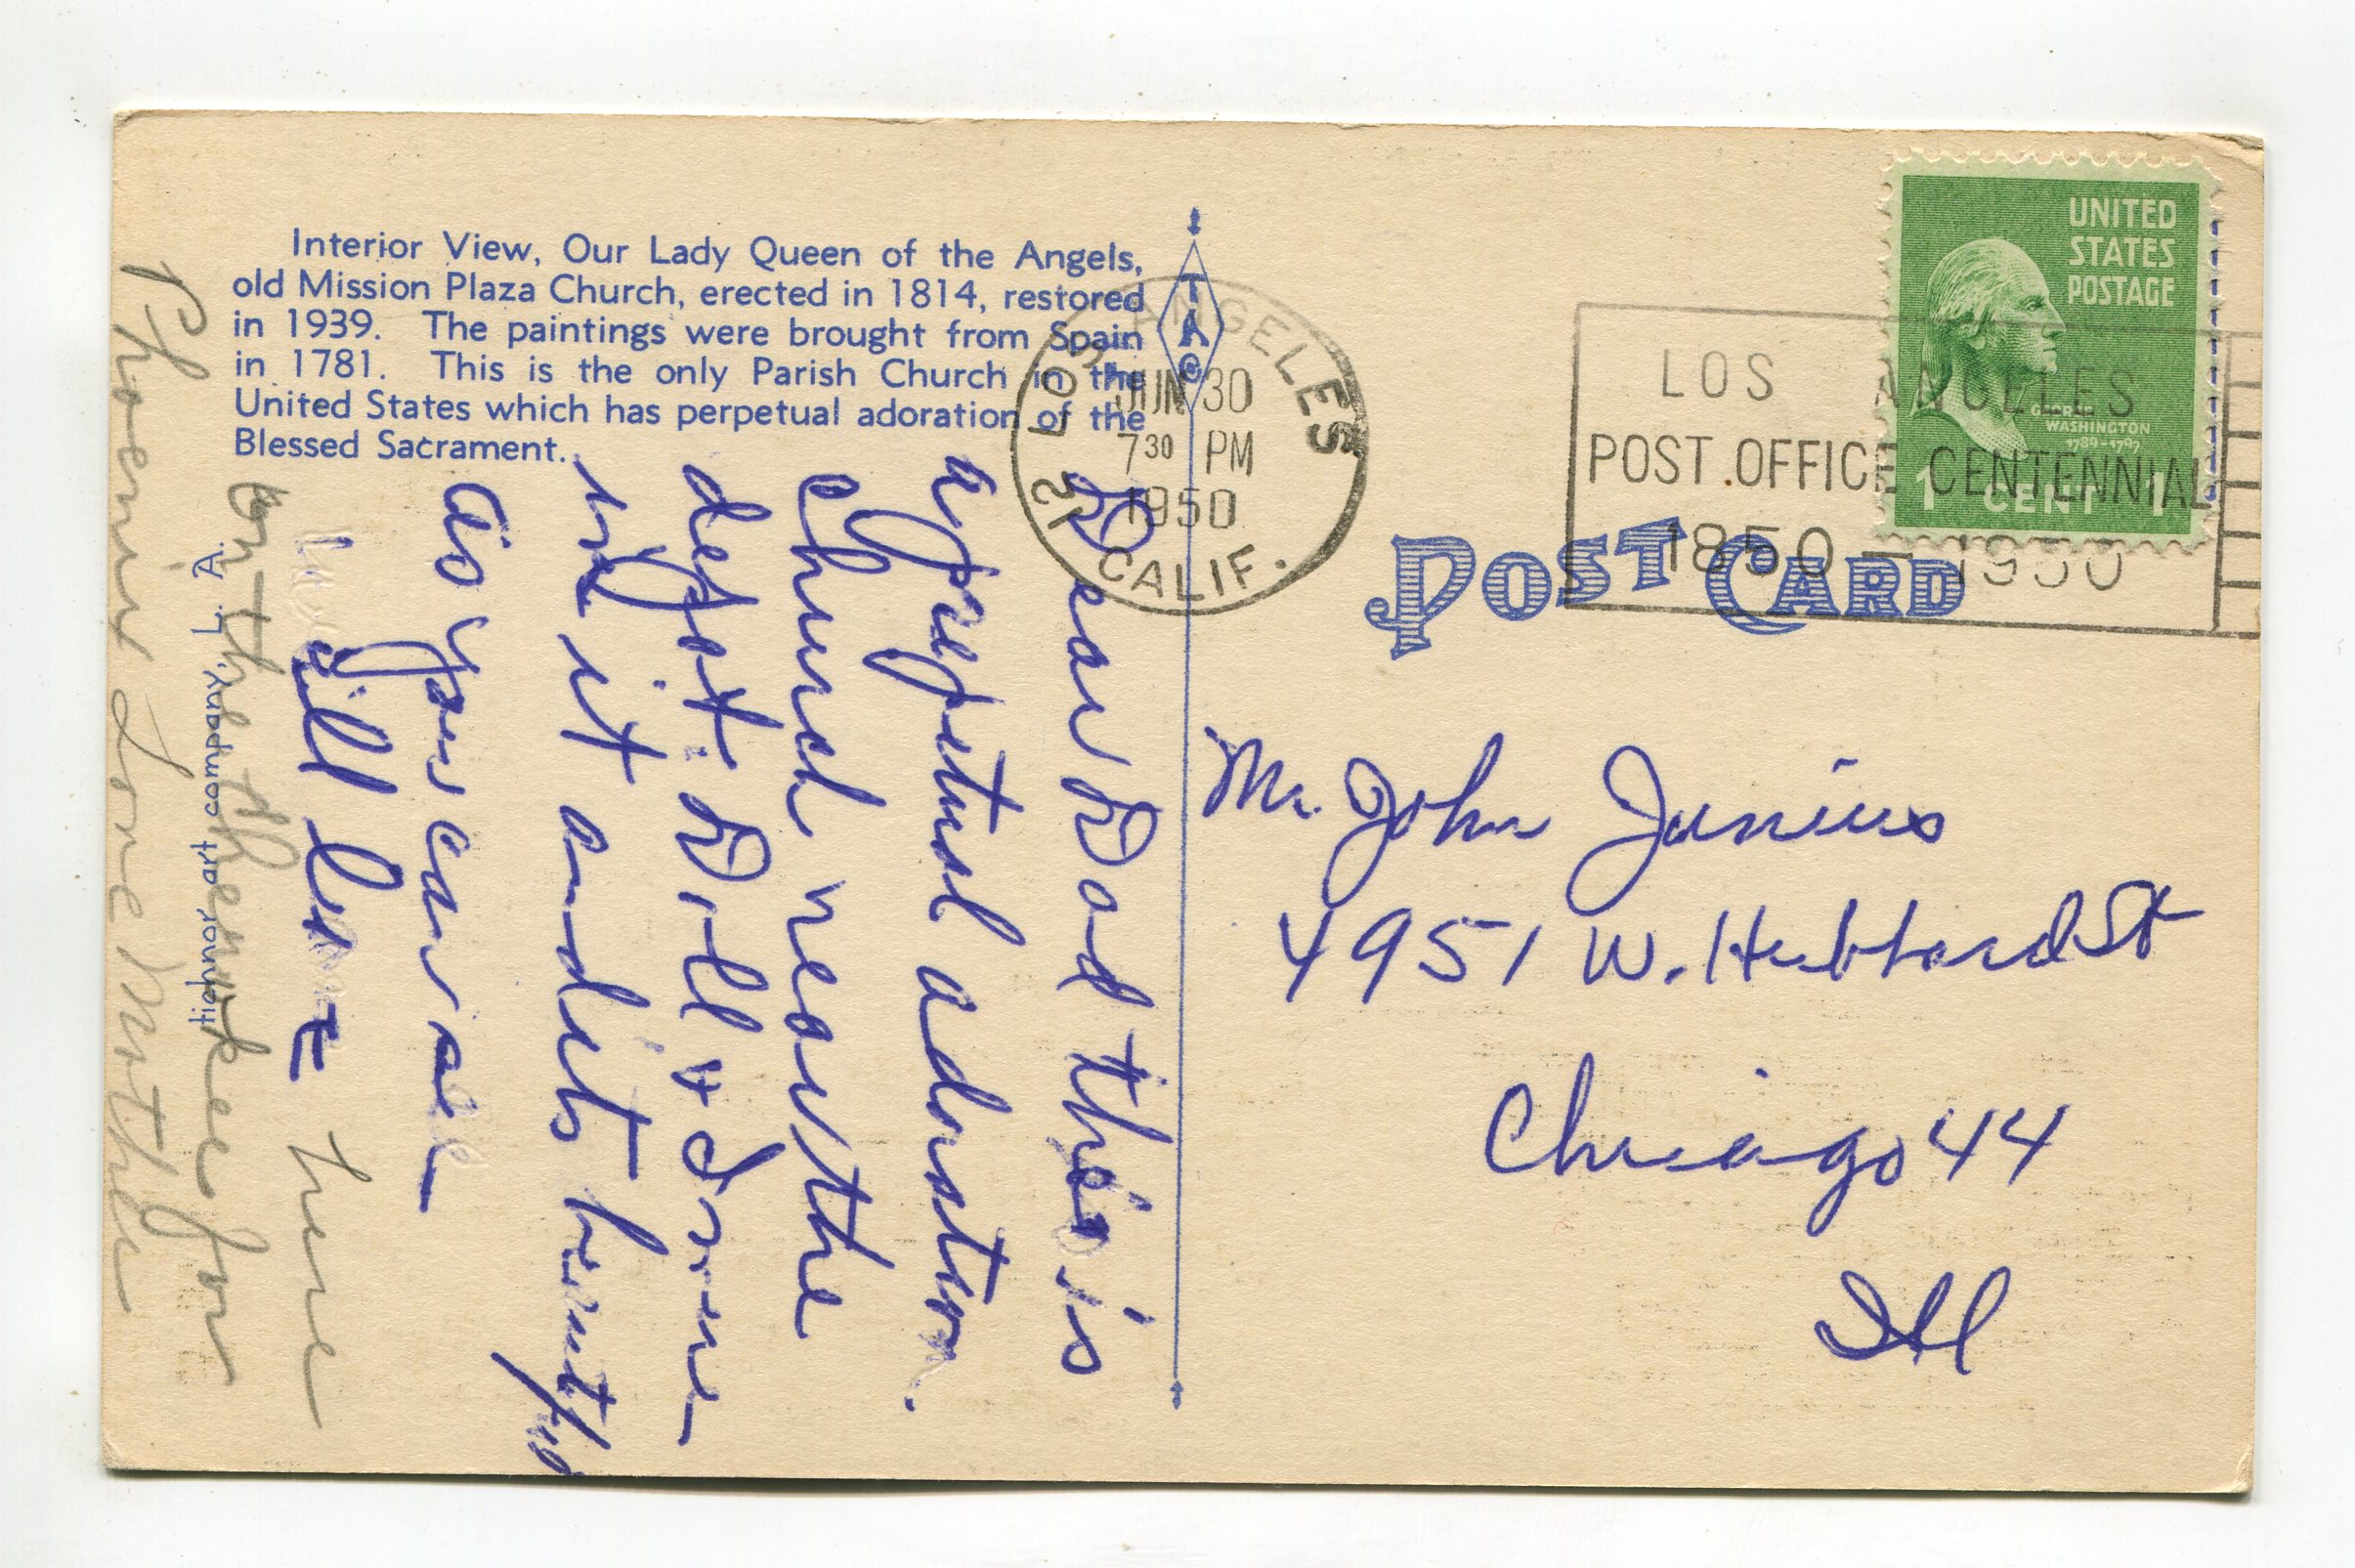 Interior View, Our Lady Queen of the Angels,
old Mission Plaza Church, erected in 1814, restored
in 1939. The paintings were brought from Spain
in 1781. This is the only Parish Church in the
United States which has perpetual adoration of the
Blessed Sacrament.
Dear Dad this is
a perpetual adoration.
church near the
depot. Bill & Irene
in it and its beautiful
as you can see
will leave here
on the
Phoenix Love Mother
tichnor art company, L. A.
TAC
LOS ANGELES
JUN 30
7 30 PM
1950
CALIF.
LOS ANGELES
POST OFFICE CENTENNIAL
1850 – 1950
UNITED
STATES
POSTAGE
GEORGE
WASHINGTON
1789-1797
1 CENT 1
POST CARD
Mr. John Junius
4951 W. Hubbard St
Chicago 44
Ill